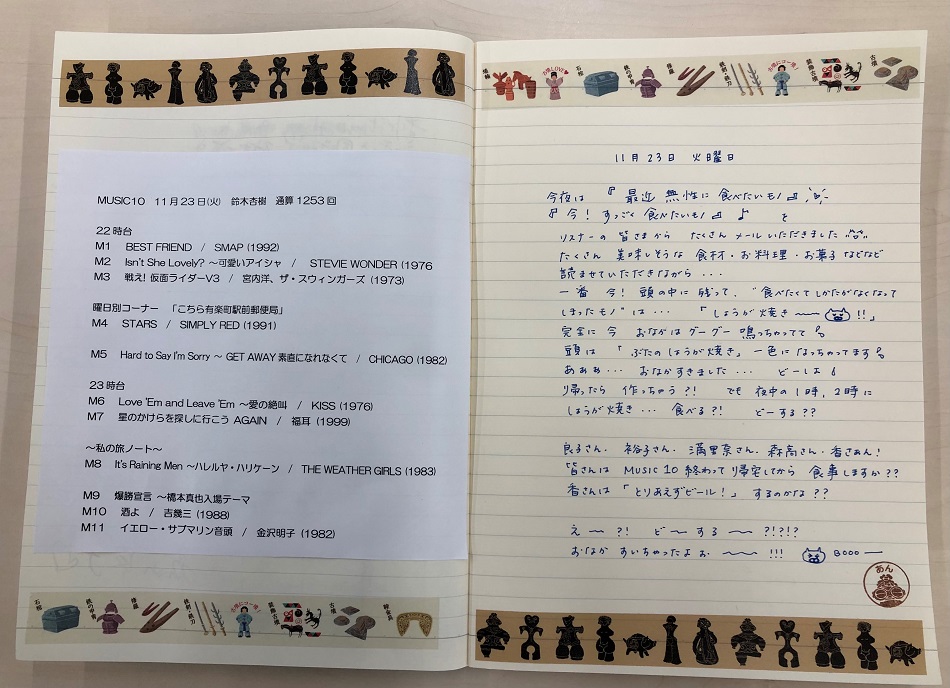 MUSIC10　11月23日(火)　鈴木杏樹　通算1253回
22時台
M1　BEST FRIEND　/　SMAP (1992)
M2　Isn't She Lovely? ～可愛いアイシャ　/　STEVIE WONDER (1976
M3　戦え! 仮面ライダーV3　/　宮内洋、ザ・スウィンガーズ (1973)
曜日別コーナー　「こちら有楽町駅前郵便局」
M4　STARS　/　SIMPLY RED (1991)
M5　Hard to Say I'm Sorry ～ GET AWAY 素直になれなくて　/　CHICAGO (1982)
23時台
M6　Love 'Em and Leave 'Em ～愛の絶叫　/　KISS (1976)
M7　星のかけらを探しに行こう AGAIN　/　福耳 (1999)
～私の旅ノート～
M8　It's Raining Men ～ハレルヤ・ハリケーン　/　THE WEATHER GIRLS (1983)
M9　爆勝宣言 ～橋本真也入場テーマ
M10　酒よ　/　吉幾三 (1988)
M11　イエロー・サブマリン音頭　/　金沢明子 (1982)
石棺
鉄の甲冑
蜂巌
鉄剣・鉄刀
古墳にコーフン!
装飾古墳
古墳
埴輪
古墳LOVE
石棺
鉄の甲冑
鉄剣・鉄刀
装飾古墳
古墳
11月23日　火曜日
今夜は 『最近 無性に 食べたいモノ』
『今! すっごく 食べたいモノ』♪ を
リスナーの 皆さまから たくさん メールいただきました
たくさん 美味しそうな 食材・お料理・お菓子などなど
読ませていただきながら・・・
一番 今! 頭の中に 残って、"食べたくてしかたがなくなって
しまったモノ" は・・・ 「しょうが焼き～～!!」
完全に 今 おなかは グーグー 鳴っちゃってて
頭は 「ぶたのしょうが焼き」 一色に なっちゃってます
あぁぁ・・・ おなかすきました・・・ どーしよ
帰ったら 作っちゃう?! でも 夜中の1時,2時に
しょうが焼き・・・ 食べる?! どーする??
良子さん、裕子さん、満里奈さん、森高さん、香さぁん!
皆さんは MUSIC10 終わって 帰宅してから 食事しますか??
香さんは 「とりあえずビール!」 するのかな??
え～～?! ど～する～～?!?!?
おなか すいちゃったよぉ～～～!!! BOOO ー
あん